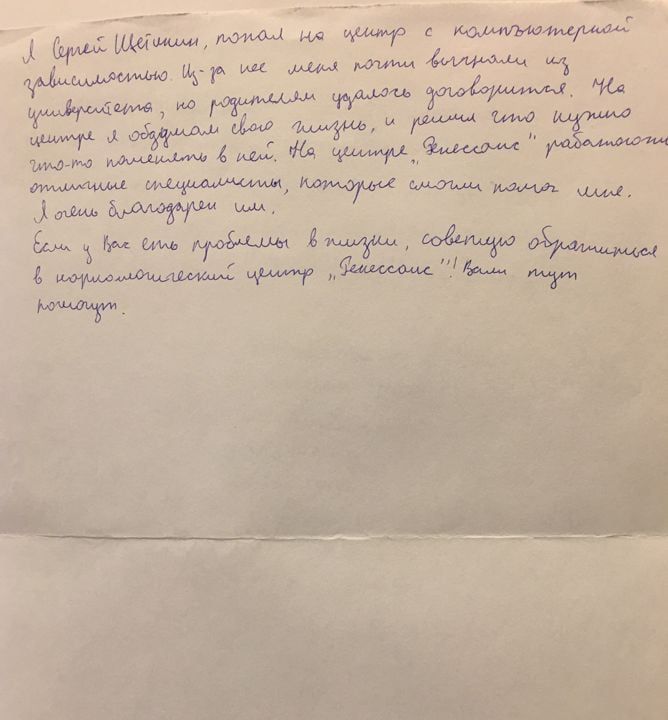 Я Сергей Щетинин, попал на центр с компъютерной
зависимостью. Из-за нее меня почти выгнали из
университета, но родителям удалось договорится. На
центре я обдумал свою жизнь, и решил что нужно
что-то поменять в ней. На центре „Ренессанс" работают
отличные специалисты, которые смогли помог мне.
Я очень благодарен им.
Если у Вас еть проблемы в жизни, советую обратиться
в наркологический центр „Ренессанс"!! Вам тут
помогут.